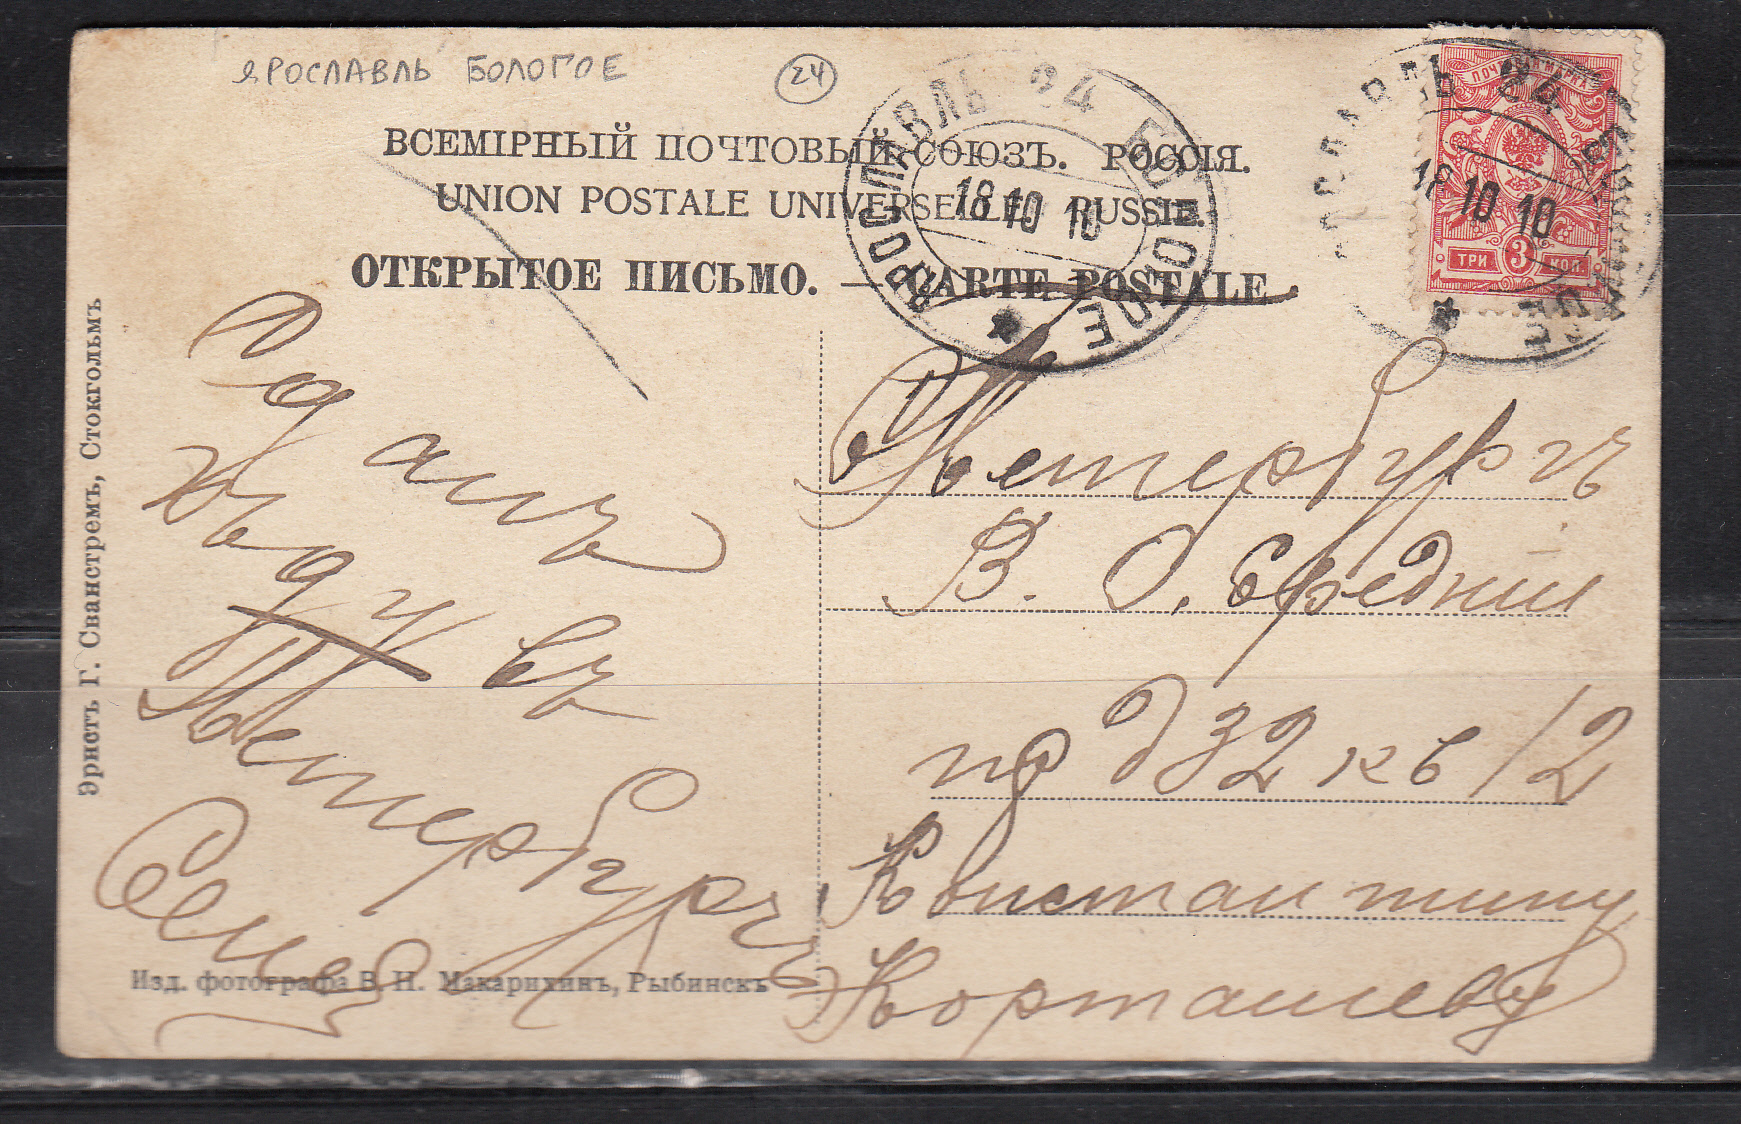 ЯРОСЛАВЛЬ БОЛОГОЕ 24
ВСЕМІРНЫЙ ПОЧТОВЫЙ СОЮЗЪ. РОССІЯ.
UNION POSTALE UNIVERSELLE. RUSSIE.
ОТКРЫТОЕ ПИСЬМО. — CARTE POSTALE.
ЯРОСЛАВЛЬ 24 БОЛОГОЕ
18 10 10
ЯРОСЛАВЛЬ 24
18 10 10
ПОЧТОВАЯ МАРКА
ТРИ 3 КОП
Эрнстъ Г. Сванстремъ, Стокгольмъ
въ
Петербургъ
Изд. фотографа В. Н. Макарихинъ, Рыбинскъ
Петербургъ
В. О. Средній
пр д 32 кв 12
Константину
Корташеву